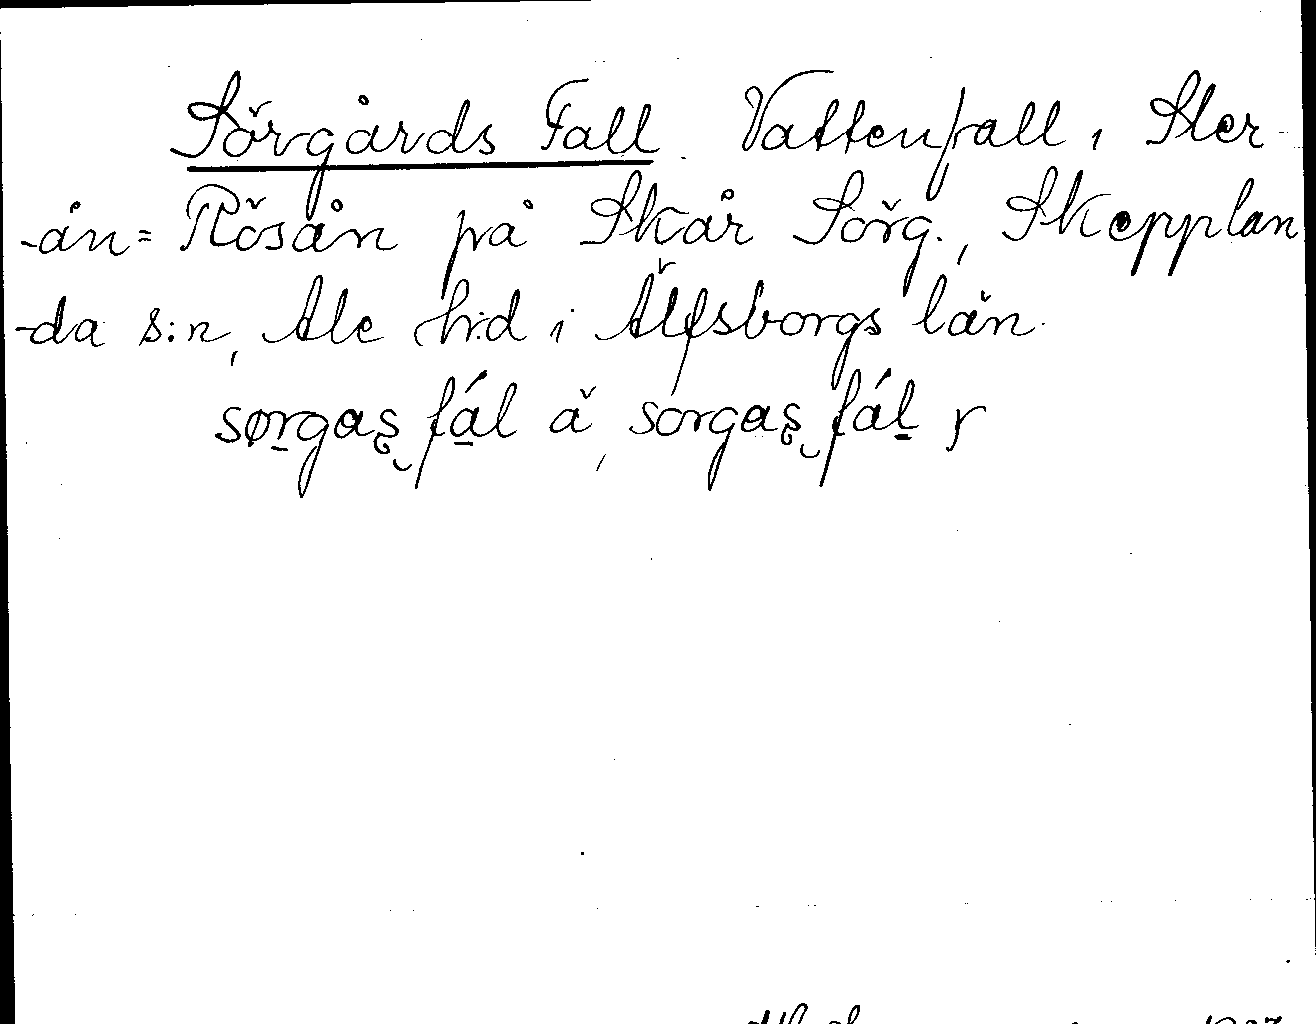 Sörgårds Fall. Vattenfall i Ster-
-ån = Rösån på Skår Sörg., Skepplan
-da s:n, Ale h:d i Älfsborgs län.
sørgaş fál ä, sørgaş fáḻ r